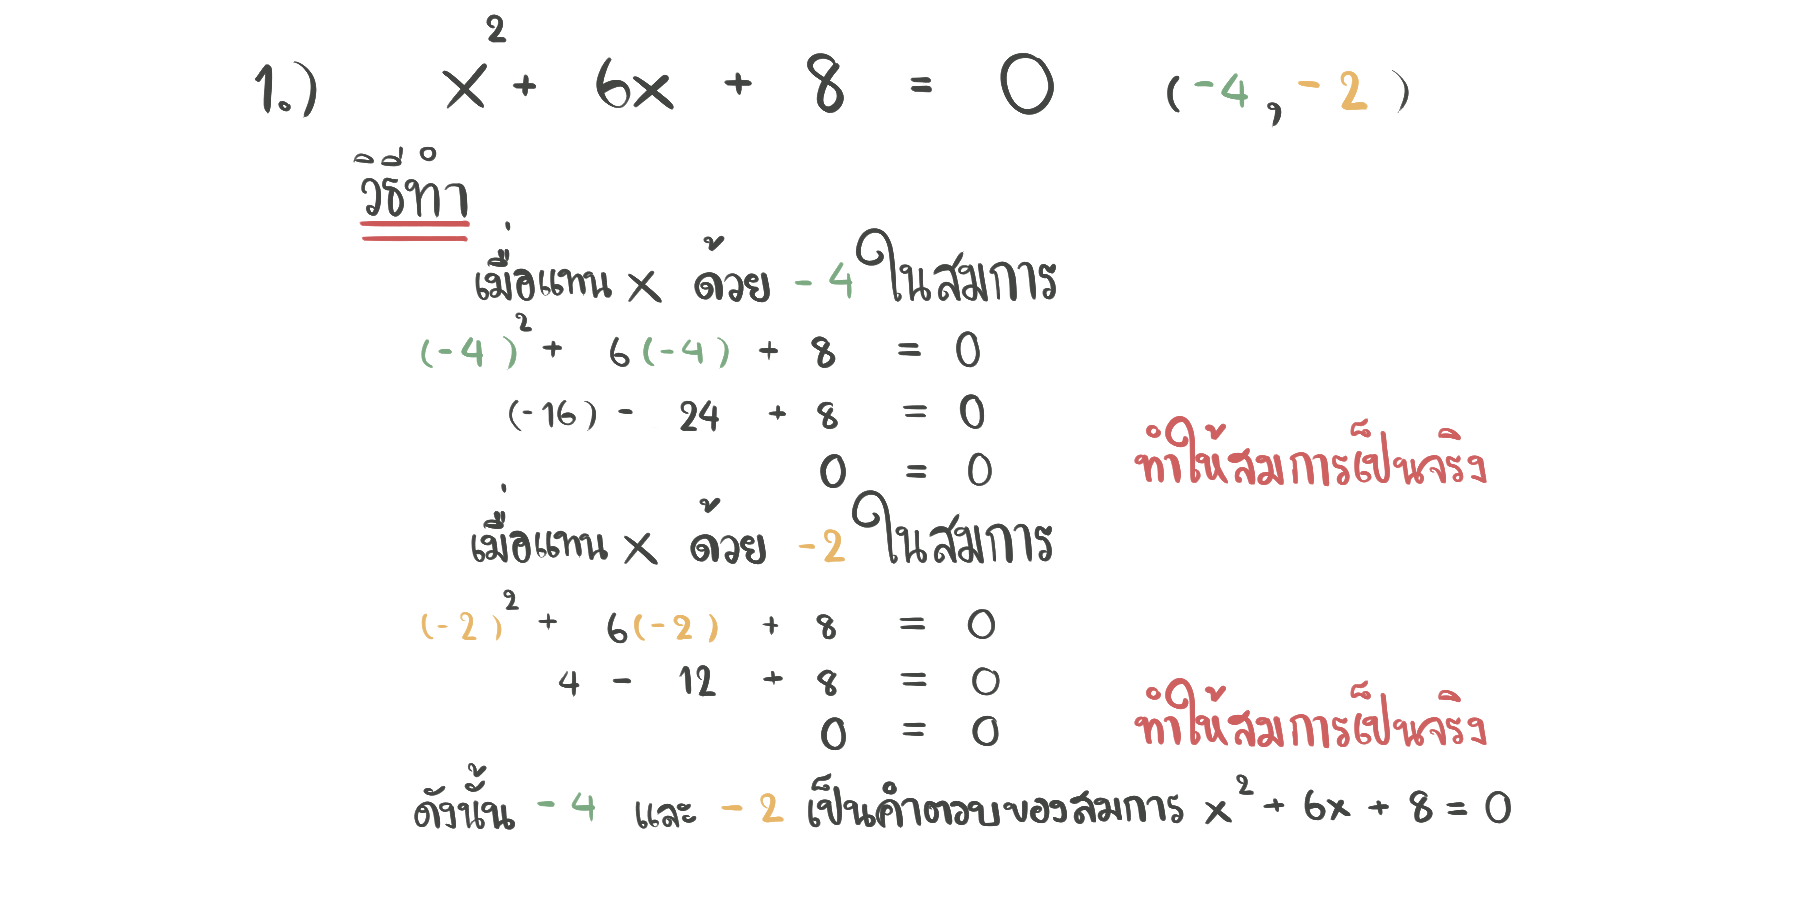 1.) x² + 6x + 8 = 0 (-4, -2)
วิธีทำ
เมื่อแทน x ด้วย -4 ในสมการ
(-4)² + 6(-4) + 8 = 0
(-16) - 24 + 8 = 0
0 = 0 ทำให้สมการเป็นจริง
เมื่อแทน x ด้วย -2 ในสมการ
(-2)² + 6(-2) + 8 = 0
4 - 12 + 8 = 0
0 = 0 ทำให้สมการเป็นจริง
ดังนั้น -4 และ -2 เป็นคำตอบของสมการ x² + 6x + 8 = 0